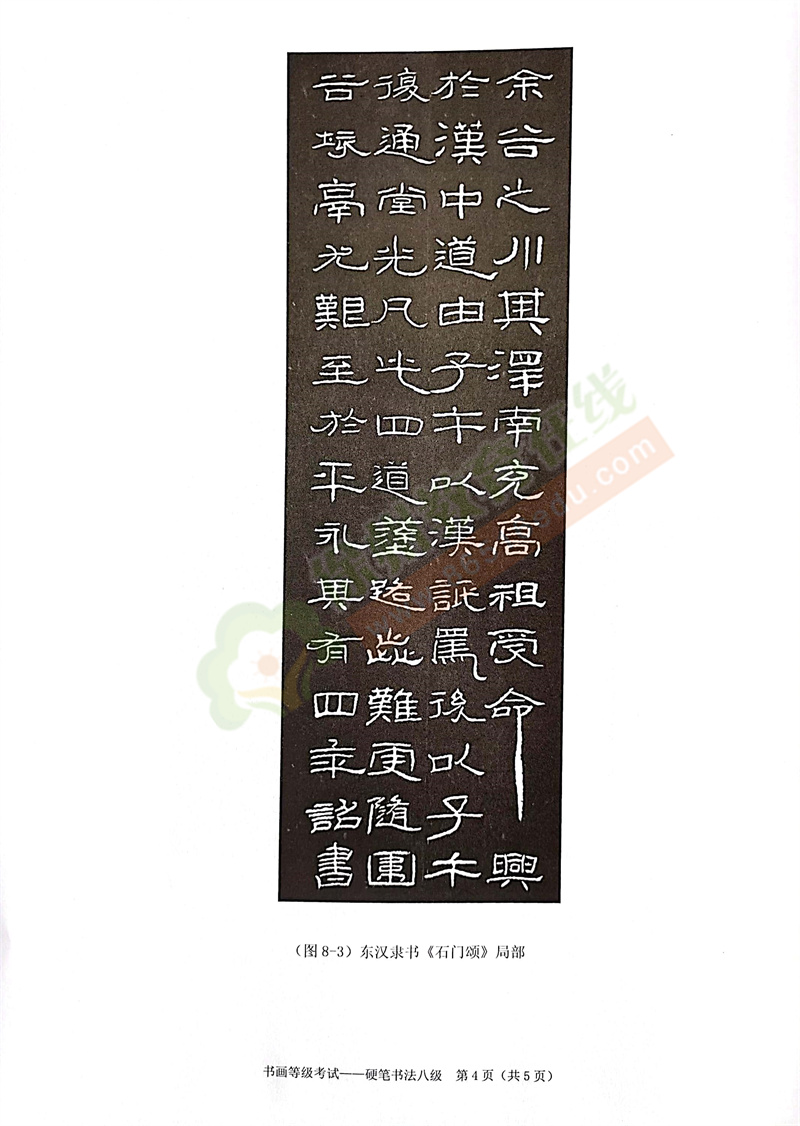 余谷之川其澤南充高祖受命興
於漢中道由子午以漢詆焉後以子午
復通堂光凡此四道塗路歮難更隨圍
谷垓鬲尤艱至於平永其有四年詔書
(图8-3)东汉隶书《石门颂》局部
书画等级考试——硬笔书法八级 第4页(共5页)